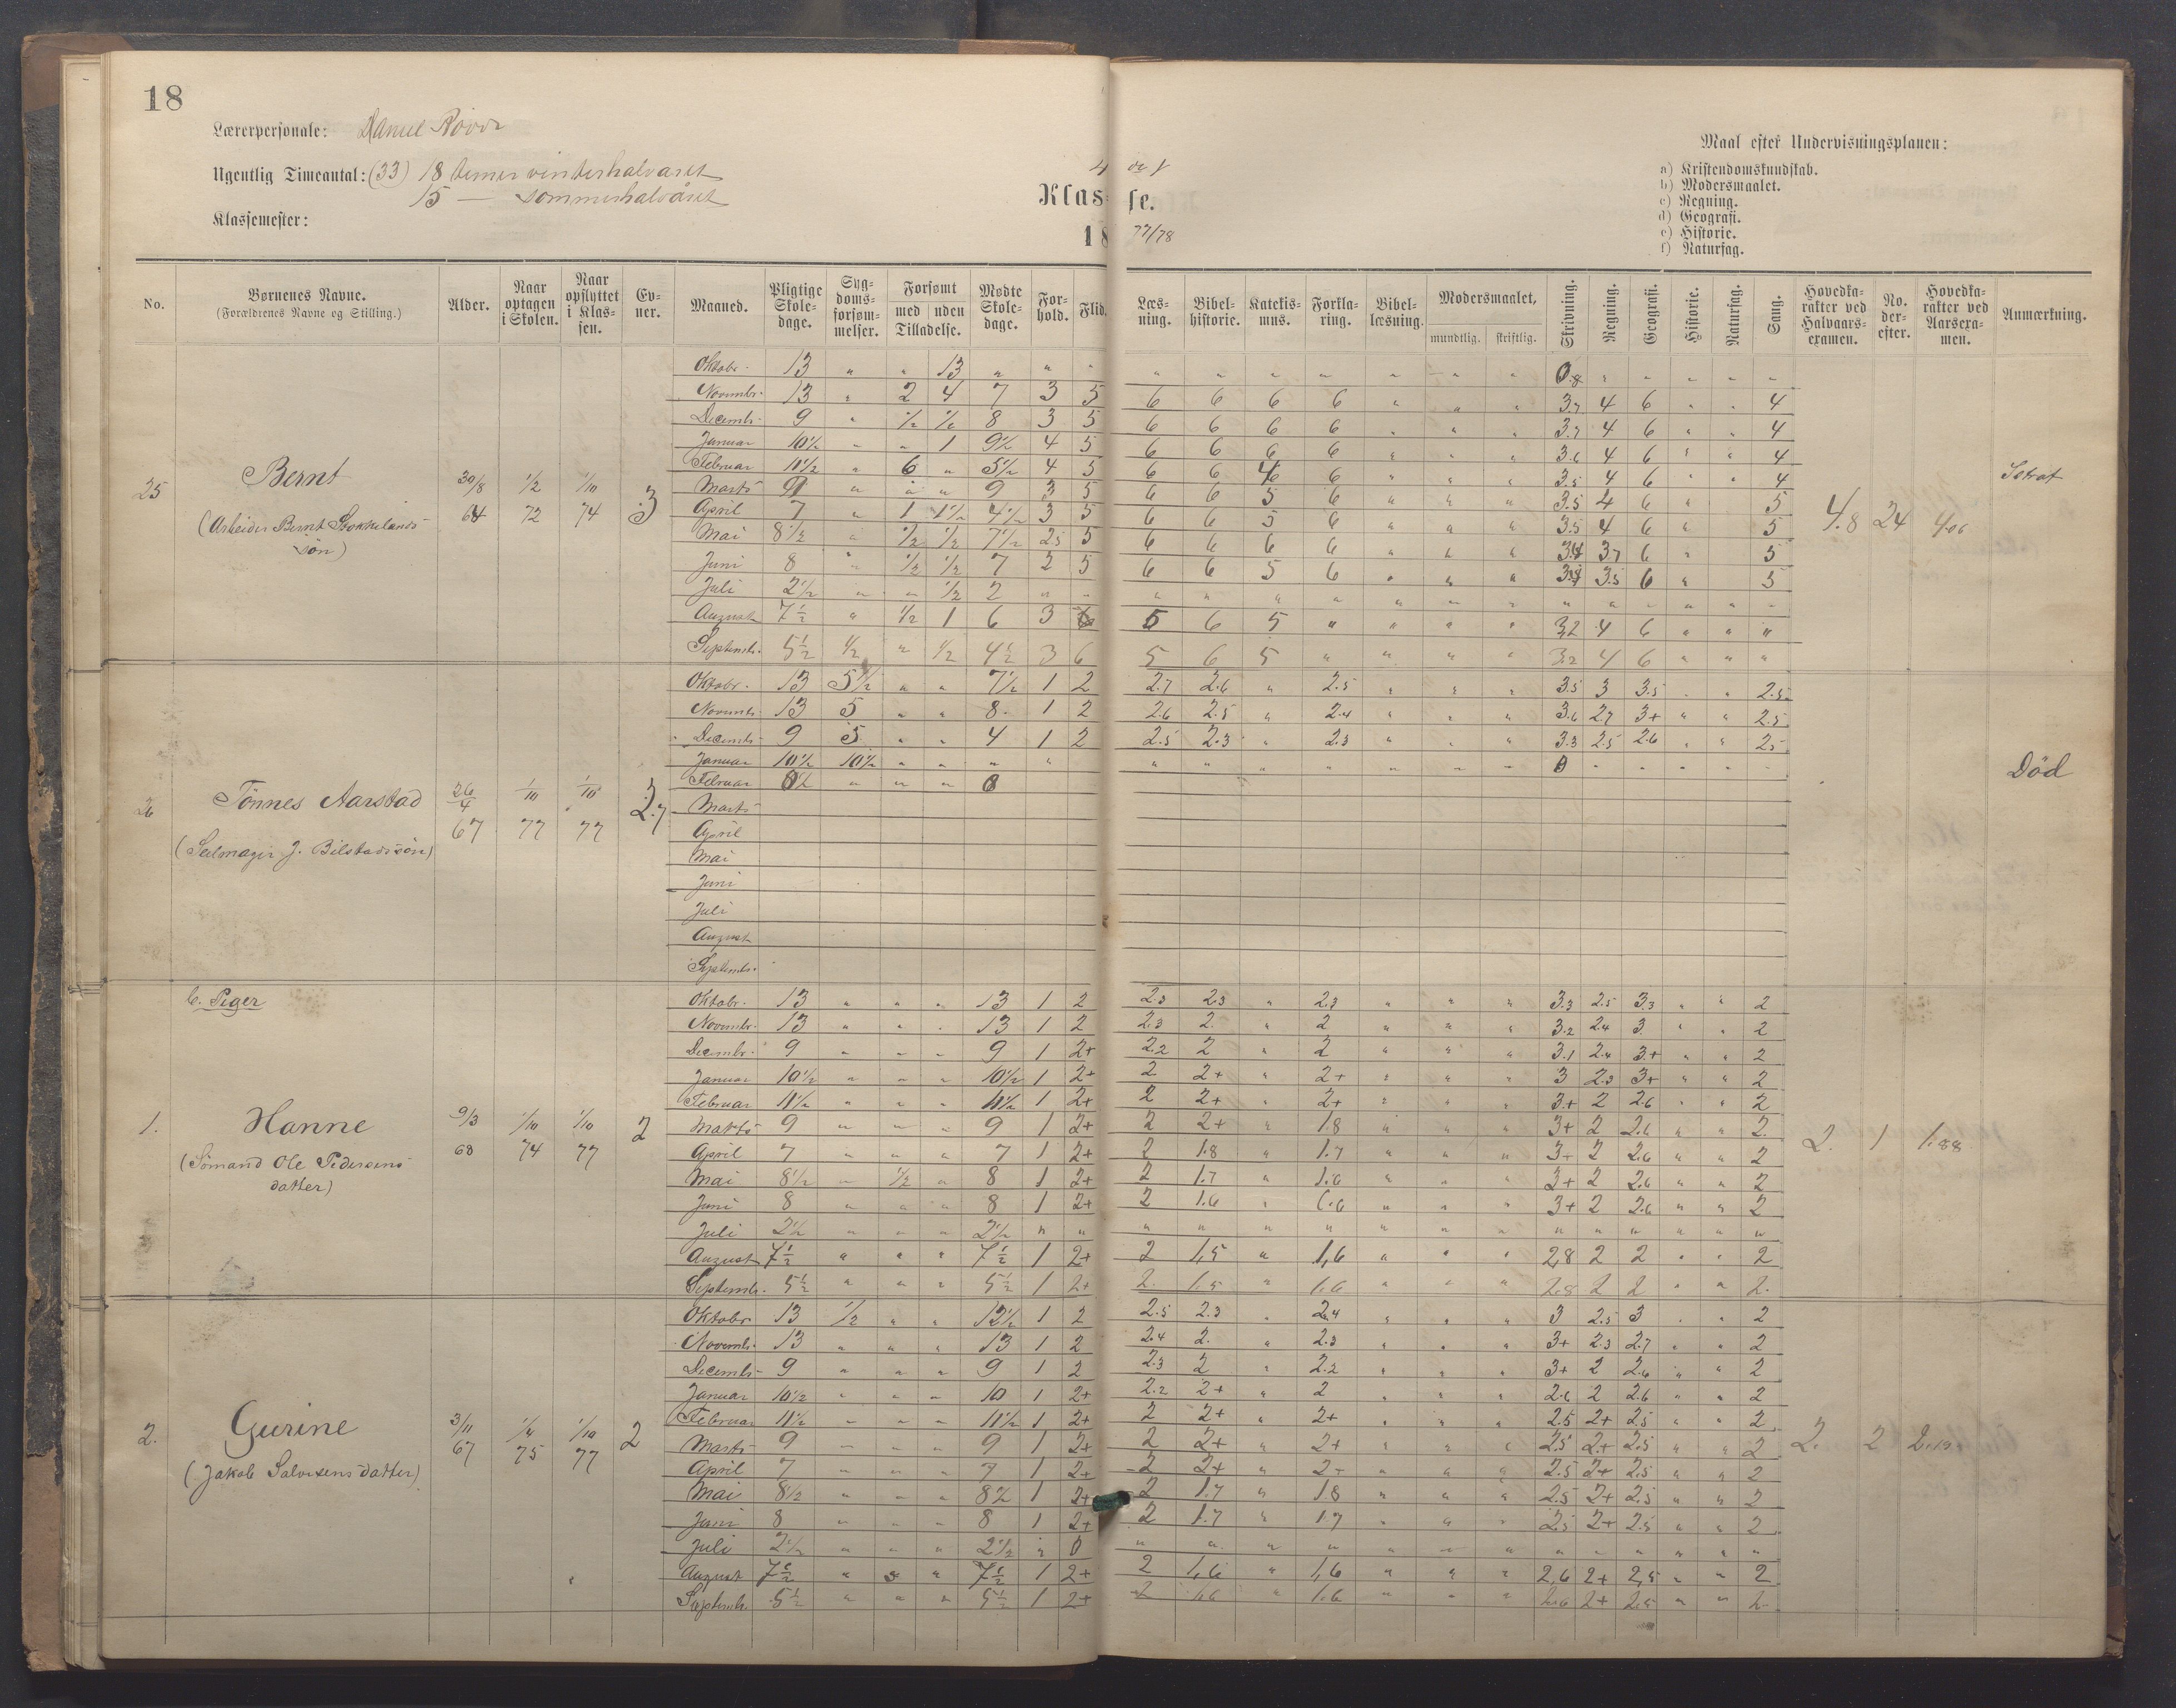 18
Lærerpersonale:
Ugentlig Timeantal: (33) 18 timer vinterhalvaret
15 — sommerhalvåret
Klassemester:
Klasse.
1877/78
Maal efter Undervisningsplanen:
a) Kristendomskundskab.
b) Modersmaalet.
c) Regning.
d) Geografi.
e) Historie.
f) Naturfag.
No. Børnenes Navne. (Forældrenes Navne og Stilling.) Alder. Naar optagen i Skolen. Naar opflyttet i Klassen. Evner. Maaned. Pligtige Skoledage. Sygdomsforsømmelser. Forsømt med uden Tilladelse. Mødte Skoledage. Forhold. Flid. Læsning. Bibelhistorie. Katekismus. Forklaring. Bibellæsning. Modersmaalet, mundtlig. skriftlig. Skrivning. Regning. Geografi. Historie. Naturfag. Sang. Hovedkarakter ved Halvaarsexamen. No. derefter. Hovedkarakter ved Aarsexamen. Anmærkning.
25 Bernt 30/8 1/2 72 1/10 74 3 4.8 24
(Arbeider Bernt
søn)
Oktobr. 13 " " 13 " " "
Novembr. 13 " 2 4 7 3 5 6 6 6 6 " " " 3.7 4 6 " " 4
Decembr. 9 " 1/2 1/2 8 3 5 6 6 6 6 " " " 3.7 4 6 " " 4
Januar 10 1/2 " " 1 9 1/2 4 5 6 6 6 6 " " " 3.6 4 6 " " 4
Februar 11 1/2 " 6 " 5 1/2 4 5 6 6 6 6 " " " 3.5 4 6 " " 4
Marts 9 " " " 9 3 5 6 6 5 6 " " " 3.5 4 6 " 5
April 7 " 1 1 1/2 4 1/2 3 5 6 6 5 6 " " " 3.5 4 6 " 5
Mai 8 1/2 " 1/2 1/2 7 1/2 2.5 5 6 6 6 6 " " " 3.7 6 " 5
Juni 8 " 1/2 1/2 7 2 5 6 6 5 6 " " " 3.5 6 " 5
Juli 2 1/2 " " 1/2 2 " "
August 7 1/2 " 1/2 1 6 3 6 5 6 5 " " " " 3,2 4 6 " " "
Septembr. 5 1/2 1/2 " 1/2 4 1/2 3 6 5 6 5 " " " " 3.2 4 6 " " "
26 Tönnes Aarstad 26/4 67 1/10 77 1/10 77 2.7 Död
Oktobr. 13 5 1/2 " " 7 1/2 1 2 2.7 2.6 " 2.5 " " " 3.5 3 3.5 " " 2.5
Novembr. 13 5 " " 8 1 2 2.6 2.5 " 2.4 " " " 3.6 2.7 3+ " " 2.5
Decembr. 9 5 " " 4 1 2 2.5 2.3 " 2.3 " " " 3.3 2.5 2.6 " " 2.5
Januar 10 1/2 10 1/2 " " " "
Februar
Marts
April
Mai
Juni
Juli
August
Septembr.
b. Piger
1. Hanne 9/3 68 1/10 74 1/10 77 2 2. 1 1.88
(Sömand Ole Pedersens
datter)
Oktobr. 13 " " " 13 1 2 2.3 2.3 " 2.3 " " " 3.3 2.5 3.3 " " 2
Novembr. 13 " " " 13 1 2 2.3 2. " 2 " " " 3.2 2.4 3 " " 2
Decembr. 9 " " " 9 1 2+ 2.2 2 " 2 " " " 3.1 2.4 3+ " " 2
Januar 10 1/2 " " " 10 1/2 1 2+ 2 2+ " 2+ " " " 3 2.3 3+ " " 2
Februar 11 1/2 " " " 11 1/2 1 2+ 2 2+ " 2+ " " " 3+ 2 2.6 " " 2
Marts 9 " " " 9 1 2+ 2 2+ " 1.8 " " " 3+ 2 2.6 " " 2
April 7 " " " 7 1 2+ 2 1.8 " 1.7 " " " 3+ 2 2.6 " " 2
Mai 8 1/2 " 1/2 " 8 1 2+ 2 1.7 " 1.6 " " " 3+ 2 2.6 " " 2
Juni 8 " " " 8 1 2+ 2 1.6 " 1.6 " " " 3+ 2 2.6 " " 2
Juli 2 1/2 " " " 2 1/2 " "
August 7 1/2 " " " 7 1/2 1 2+ 2 1,5 " 1,6 " " " 2,8 2 2 " " 2
Septembr. 5 1/2 " " " 5 1/2 1 2+ 2. 1.5 " 1.6 " " " 2.8 2 2 " " 2.
2. Gurine 3/11 67 1/4 75 1/10 77 2 2. 2
(Jakob Salvesens datter)
Oktobr 13 1/2 " " 12 1/2 1 2 2.5 2.3 " 2.4 " " " 3 2.5 3 " " 2
Novembr. 13 " " " 13 1 2 2.4 2. " 2.3 " " " 3+ 2.3 2.7 " " 2
Decembr. 9 " " " 9 1 2 2.3 2 " 2.2 " " " 3+ 2 2.6 " " 2
Januar 10 1/2 " " " 10 1 2+ 2.2 2+ " 2 " " " 2.6 2 2.6 " " 2
Februar 11 1/2 " " " 11 1/2 1 2+ 2 2+ " 2+ " " " 2.5 2+ 2.5 " " 2
Marts 9 " " " 9 1 2+ 2 2+ " 2+ " " " 2.5 2+ 2.5 " " 2
April 7 " " " 7 1 2+ 2 2+ " 2+ " " " 2.5 2+ 2.5 " " 2
Mai 8 1/2 " " " 8 1/2 1 2+ 2 1.7 " 1.8 " " " 2.5 2+ 2.5 " " 2
Juni 8 " " " 8 1 2+ 2 1.7 " 1.7 " " " 2.5 2+ 2.5 " " 2
Juli 2 1/2 " " " 2 1/2 "
August 7 1/2 " " " 7 1/2 1 2+ 2 1,6 " 1,6 " " " 2,6 2+ 2,5 " " 2
Septembr. 5 1/2 " " " 5 1/2 1 2+ 2 1.6 " 1.6 " " " 2.6 2+ 2.5 " " 2.